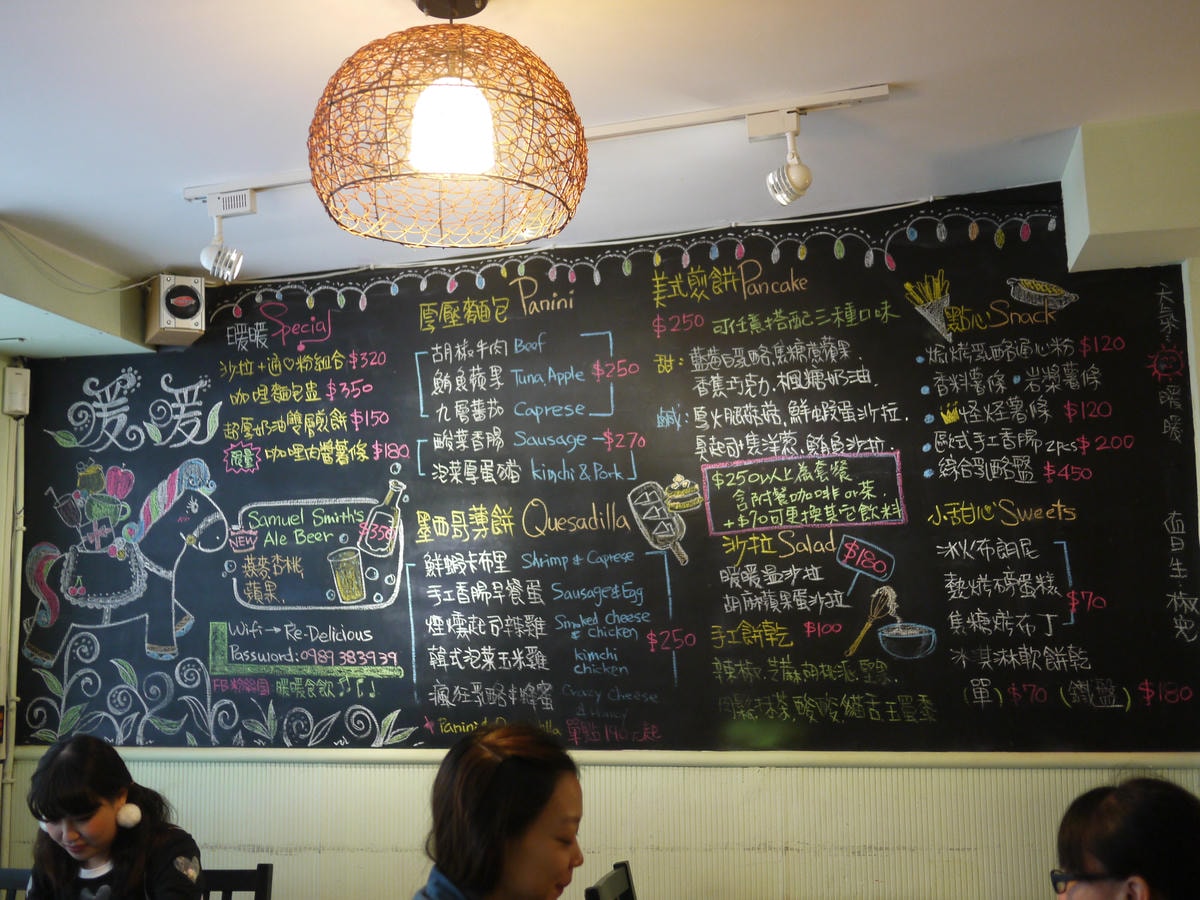 暖暖 Special
沙拉+通心粉組合 $320
咖哩麵包盅 $350
超厚奶油雙層煎餅 $150
限量 咖哩肉醬薯條 $180
暖暖
Samuel Smith's
Ale Beer $350
NEW
燕麥 杏桃
蘋果.
Wifi→Re-Delicious
Password:0989383939
FB粉絲團 暖暖食飲
厚壓麵包 Panini
胡椒牛肉 Beef
鮪魚蘋果 Tuna, Apple $250
九層蕃茄 Caprese
酸菜香腸 Sausage $270
泡菜厚蛋豬 kimchi & Pork
墨西哥薄餅 Quesadilla
鮮蝦卡布里 Shrimp & Caprese
手工香腸早餐蛋 Sausage & Egg
煙燻起司辣雞 Smoked cheese & chicken $250
韓式泡菜玉米雞 kimchi chicken
瘋狂乳酪牛蜂蜜 Crazy Cheese
單點140元起
美式煎餅 Pancake
$250 可任意搭配三種口味
甜: 藍莓白乳酪.焦糖蘋果.
香蕉巧克力.楓糖奶油.
鹹: 厚火腿蘑菇.鮮蝦蛋沙拉.
鮪魚沙拉.
$250以上為套餐
含附餐咖啡or茶
+$70可更換其它飲料
沙拉 Salad $180
暖暖溫沙拉
胡麻蘋果蛋沙拉
手工餅乾 $100
點心 Snack
焗烤乳酪通心粉 $120
香料薯條 岩漿薯條
怪怪薯條 $120
歐式手工香腸 2pcs $200
綜合乳酪盤 $450
小甜心 Sweets
冰火布朗尼
熱烤磅蛋糕 $70
焦糖烤布丁
冰淇淋軟餅乾
(單) $70 (鐵盤) $180
天氣:
暖暖